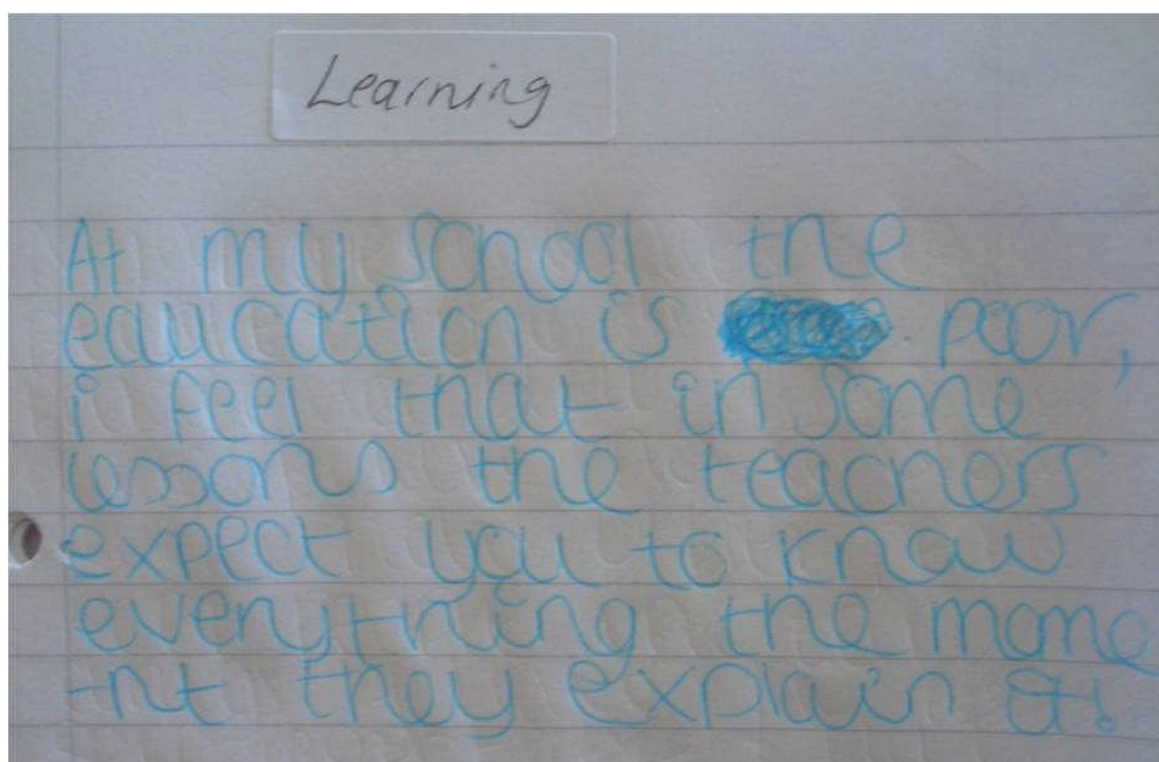 Learning
At my school the
education is poor,
i feel that in some
lessons the teachers
expect you to know
everything the mome
-nt they explain it!